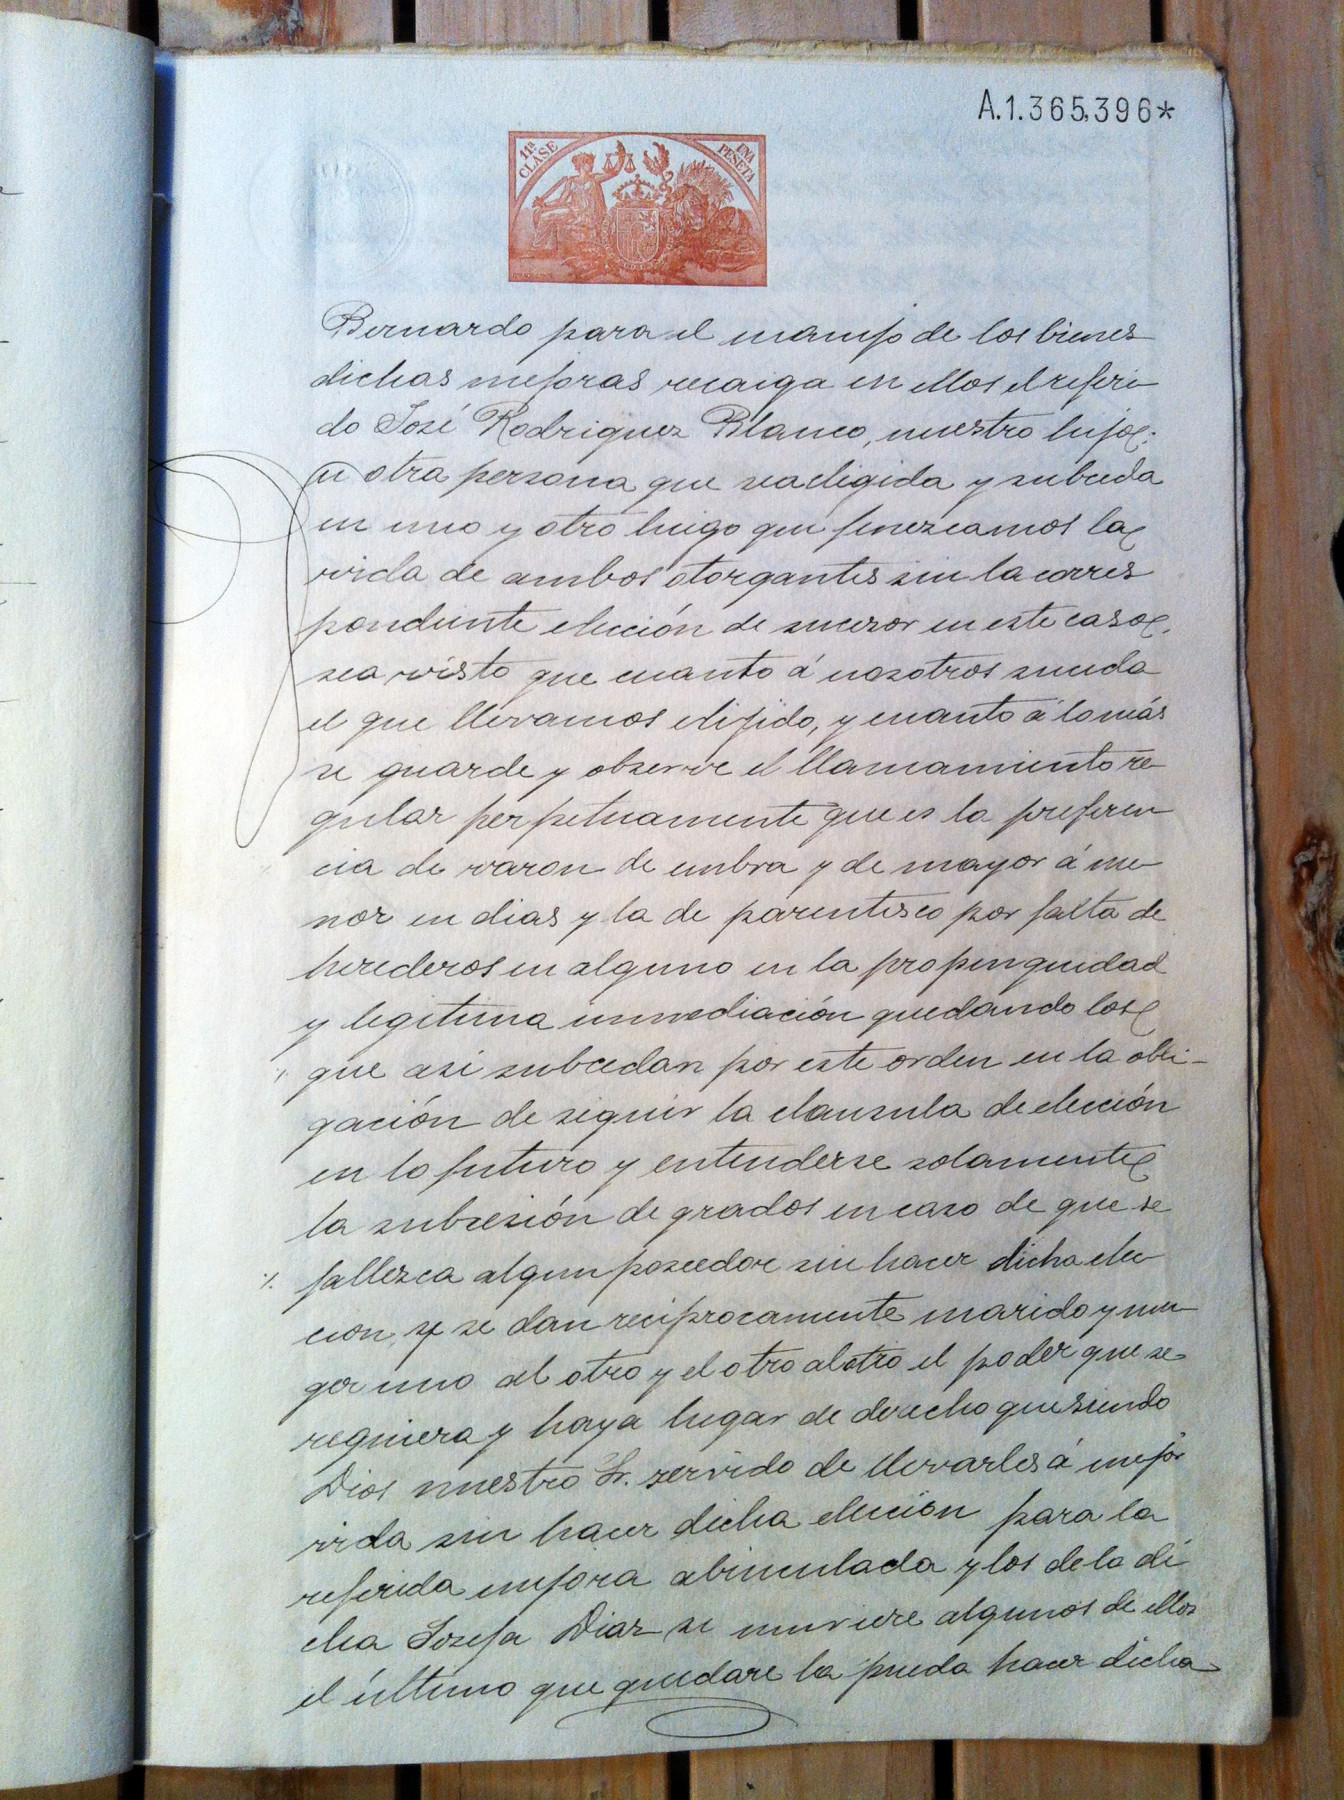 A.1.365,396*
11ª CLASE
UNA PESETA
Bernardo para el manejo de los bienes
dichas mejoras recaiga en ellos el referi-
do José Rodriguez Blanco, nuestro hijo
u otra persona que sea eligida y subceda
en uno y otro luego que fenezcamos la
vida de ambos otorgantes sin la corres
pondiente elección de sucesor en este caso
sea visto que cuanto á nosotros suceda
el que llevamos elijido, y cuanto á lo más
se guarde y observe el llamamiento re-
gular perpetuamente que es la preferen
cia de varon de embra y de mayor á me-
nor en dias y la de parentesco por falta de
herederos en alguno en la propinguidad
y legitima inmediación quedando los
que asi subcedan por este orden en la obli-
gación de seguir la clausula de elección
en lo futuro y entenderse solamente
la subcesión de grados en caso de que se
fallezca algun poseedor sin hacer dicha elec
cion, y se dan reciprocamente marido y mu
ger uno al otro y el otro al otro el poder que se
requiera y haya lugar de derecho que siendo
Dios nuestro Sr. servido de llevarles á mejor
vida sin hacer dicha elección para la
referida mejora abinculada y los de la di
cha Josefa Diaz si muriere algunos de ellos
el último que quedare la pueda hacer dicha